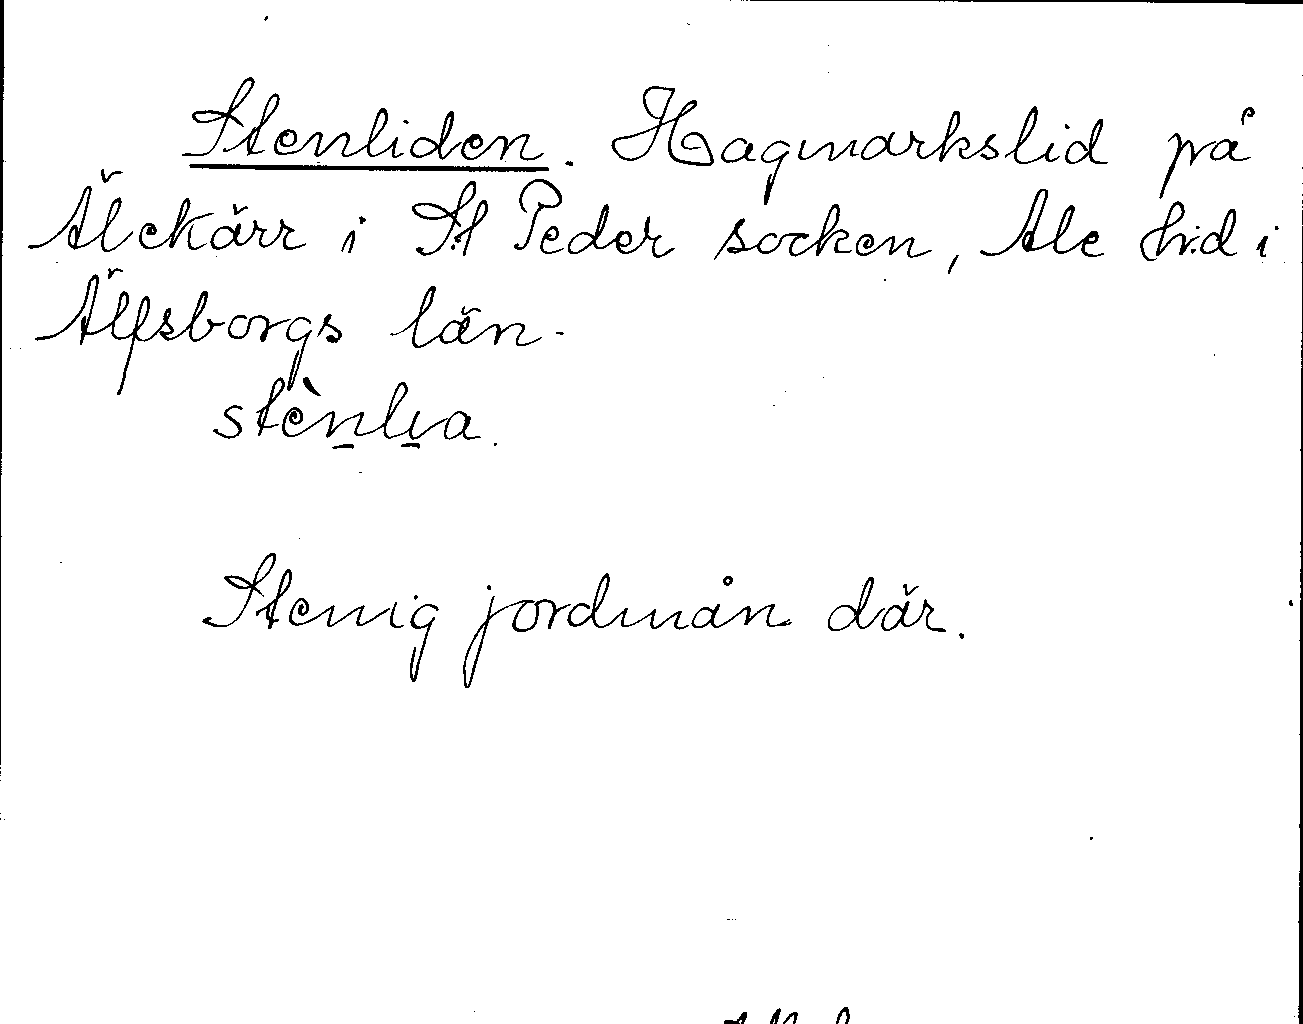 Stenliden. Hagmarkslid på
Älekärr i St Peder socken, Ale hrd i
Älfsborgs län.
stènlia.
Stenig jordmån där.